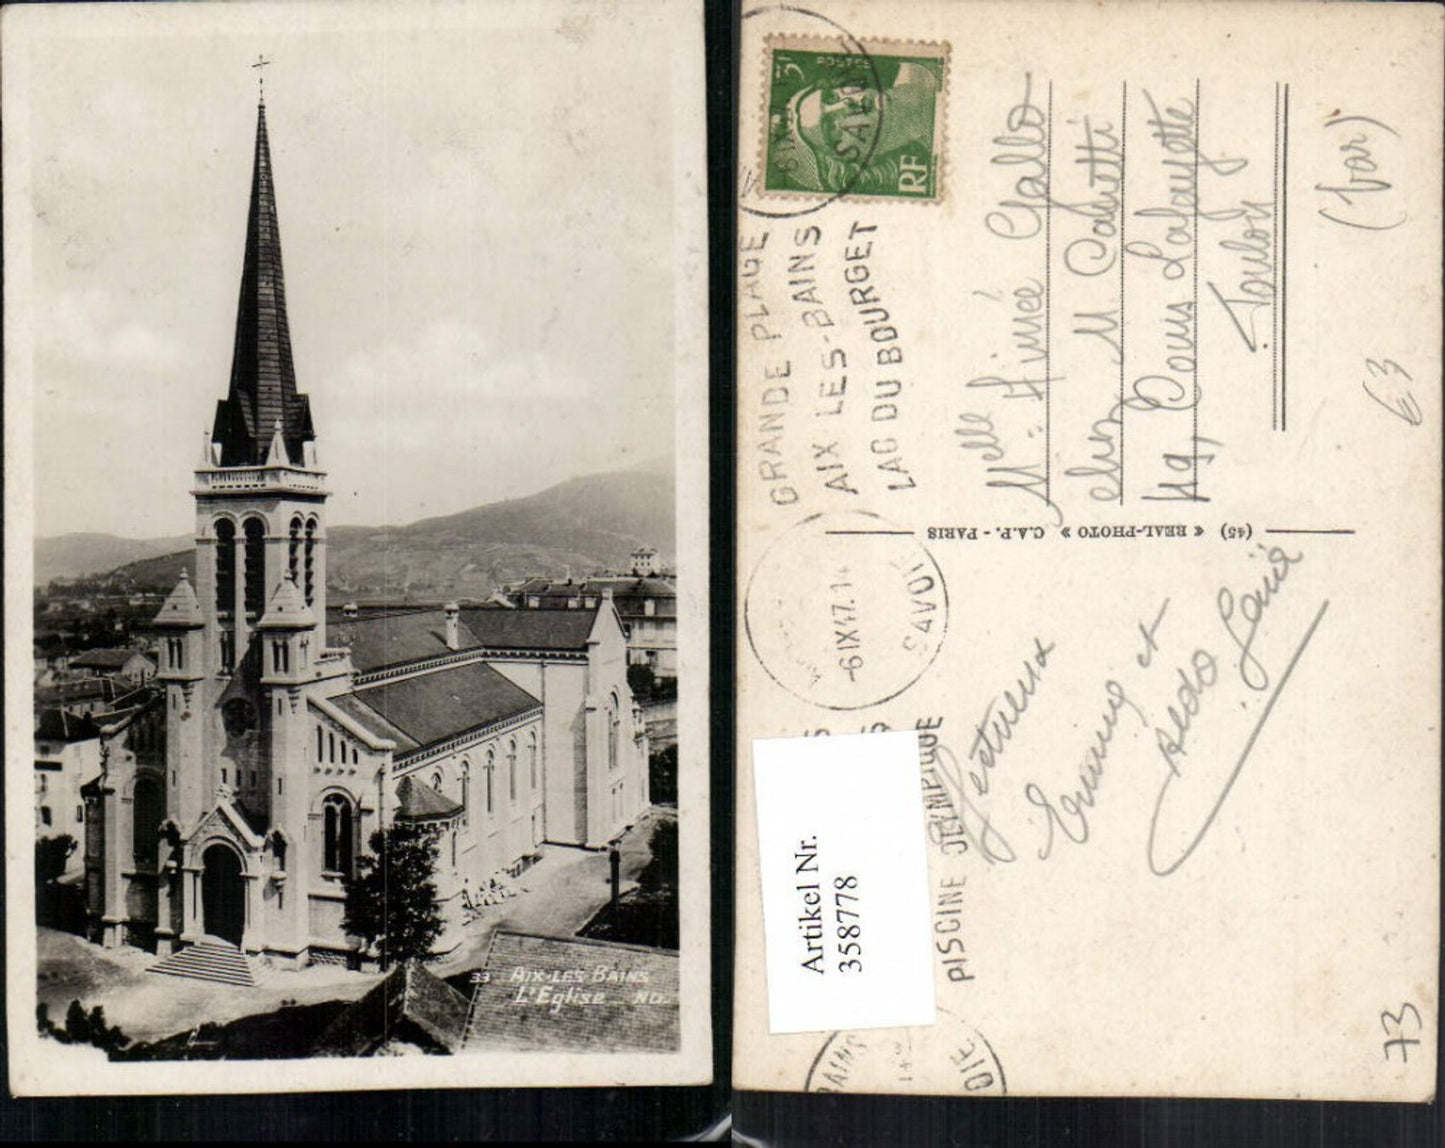 33 AIX-LES BAINS
L'Eglise ND.
POSTES
3F
RF
SAVOIE
GRANDE PLAGE
AIX LES-BAINS
LAC DU BOURGET
-6 IX 47
SAVOIE
PISCINE OLYMPIQUE
BAINS
Artikel Nr.
358778
Melle Aimée Gallo
chez M.
49, Cours Lafayette
Toulon
(Var)
(45) « REAL-PHOTO » C.A.P. - PARIS
et
Aldo
€3
73